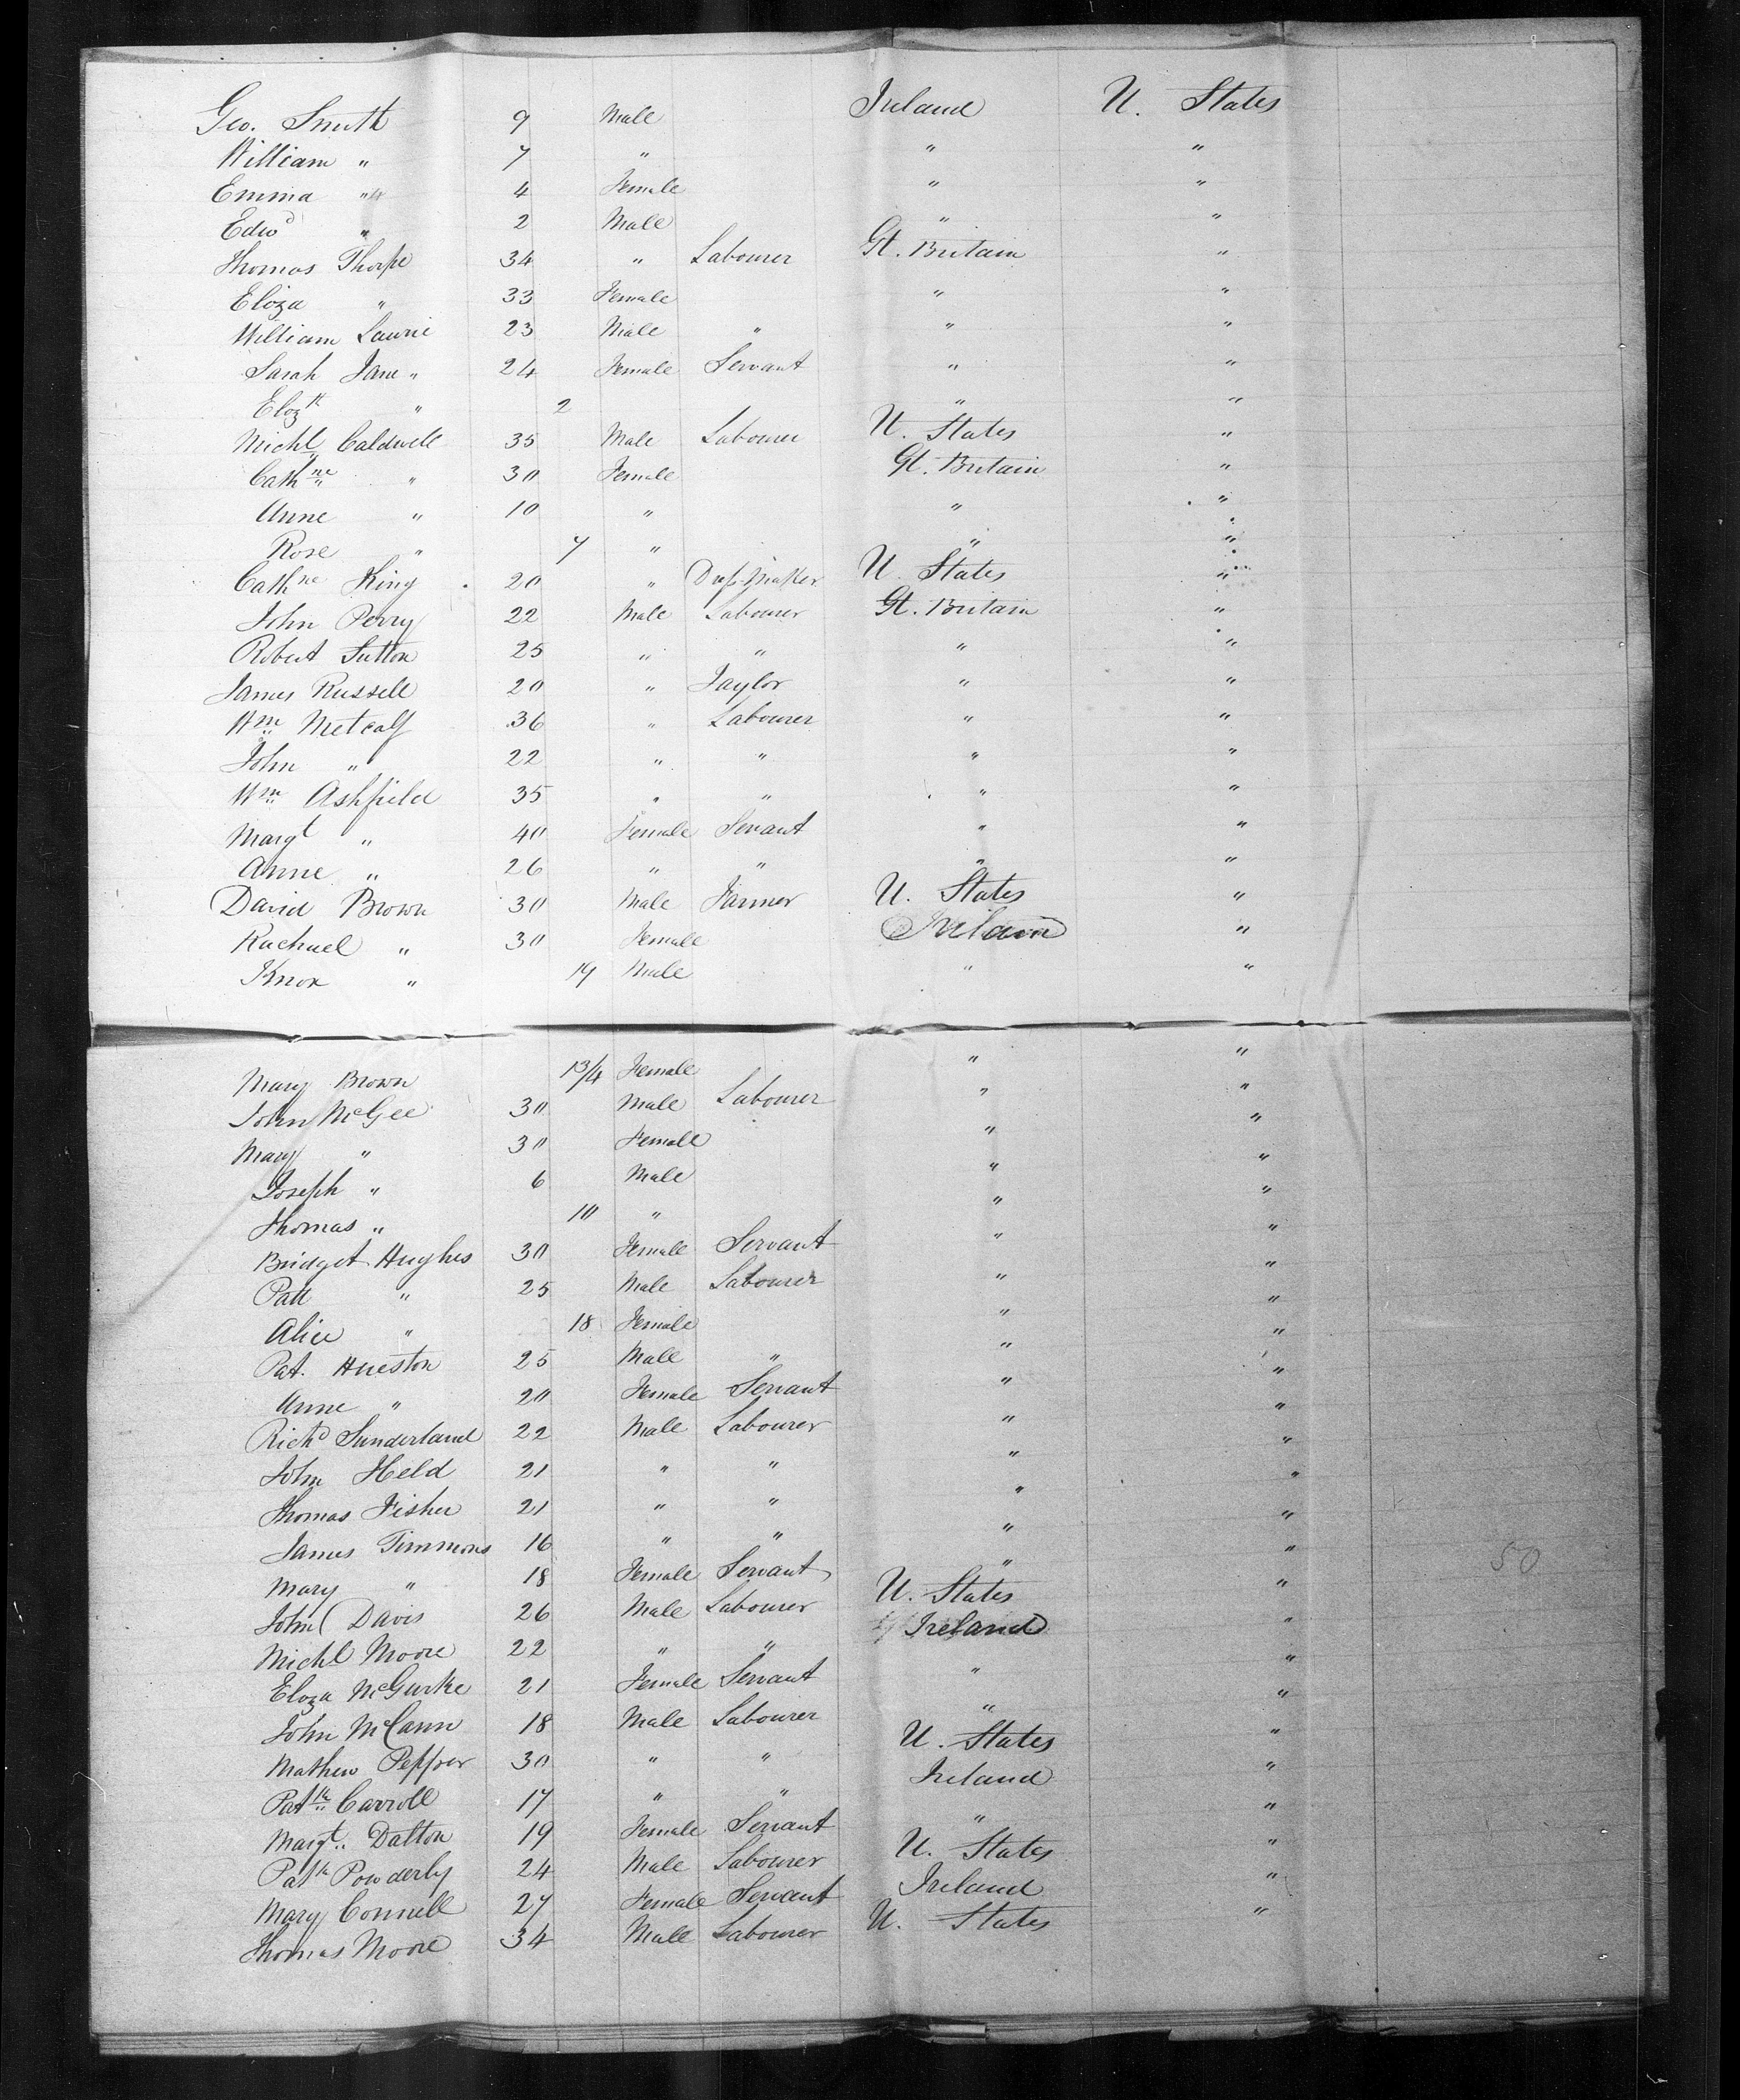 Geo. Smith 9 Male Ireland U. States
William " 7 " " "
Emma " 4 Female " "
Edwd " 2 Male " "
Thomas Thorpe 34 " Labourer Gt. Britain "
Eliza " 33 Female " "
William Laurie 23 Male " " "
Sarah Jane " 24 Female Servant " "
Elizth " 2 " "
Michl Caldwell 35 Male Labourer U. States "
Cathne " 30 Female Gt. Britain "
Anne " 10 " " "
Rose " 7 " " "
Cathne King 20 " Dressmaker U. States "
John Perry 22 Male Labourer Gt. Britain "
Robert Sutton 25 " " " "
James Russell 20 " Taylor " "
Wm Metcalf 36 " Labourer " "
John " 22 " " " "
Wm Ashfield 35 " " " "
Margt " 40 Female Servant " "
Anne " 26 " " " "
David Brown 30 Male Farmer U. States "
Rachael " 30 Female Ireland "
Knox " 19 Male " "
Mary Brown 13/4 Female " "
John McGee 30 Male Labourer " "
Mary " 30 Female " "
Joseph " 6 Male " "
Thomas " 10 " " "
Bridget Hughes 30 Female Servant " "
Patt " 25 Male Labourer " "
Alice " 18 Female " "
Pat. Hueston 25 Male " " "
Anne " 20 Female Servant " "
Richd Sunderland 22 Male Labourer " "
John Held 21 " " " "
Thomas Fisher 21 " " " "
James Timmons 16 " " " "
Mary " 18 Female Servant " "
John Davis 26 Male Labourer U. States "
Michl Moore 22 " " Ireland "
Eliza McGurke 21 Female Servant " "
John McCann 18 Male Labourer " "
Mathew Pepper 30 " " U. States "
Patk Carroll 17 " " Ireland "
Margt. Dalton 19 Female Servant " "
Patk Powderly 24 Male Labourer U. States "
Mary Connell 27 Female Servant Ireland "
Thomas Moore 34 Male Labourer U. States "
50